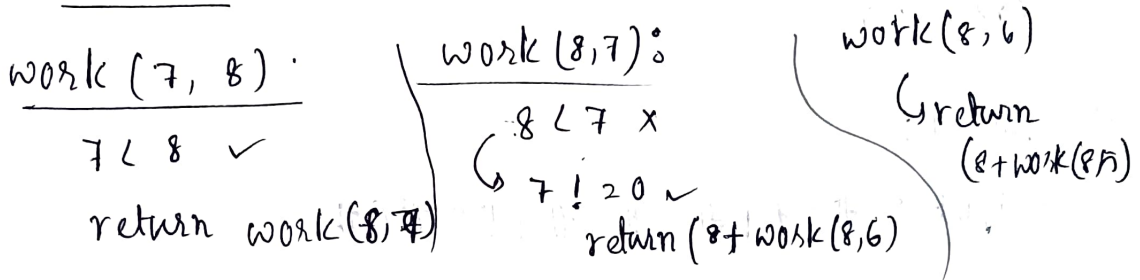 work (7, 8).
7 < 8 ✓
return work (8, 7)
work (8,7):
8 < 7 x
7 ! = 0 ✓
return (8 + work (8,6)
work (8, 6)
↳ return
(8 + work (8,5)